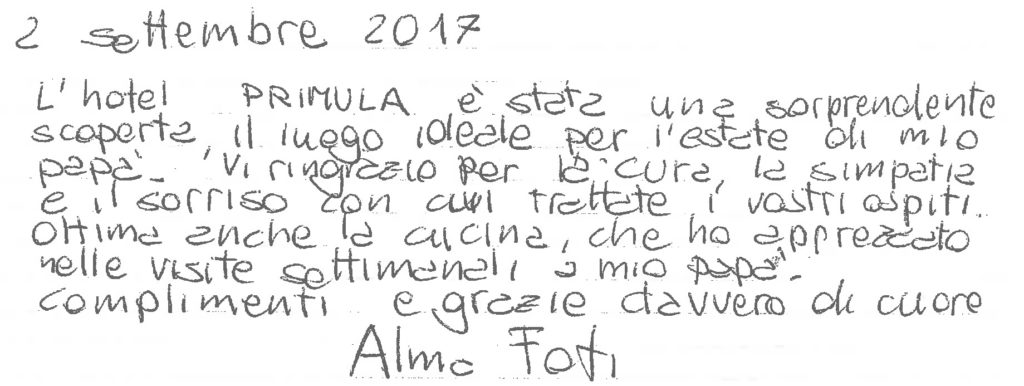 2 settembre 2017
L'hotel PRIMULA è stata una sorprendente
scoperta, il luogo ideale per l'estate di mio
papà. Vi ringrazio per la cura, la simpatia
e il sorriso con cui trattate i vostri ospiti.
Ottima anche la cucina, che ho apprezzato
nelle visite settimanali a mio papà.
Complimenti e grazie davvero di cuore
Alma Foti